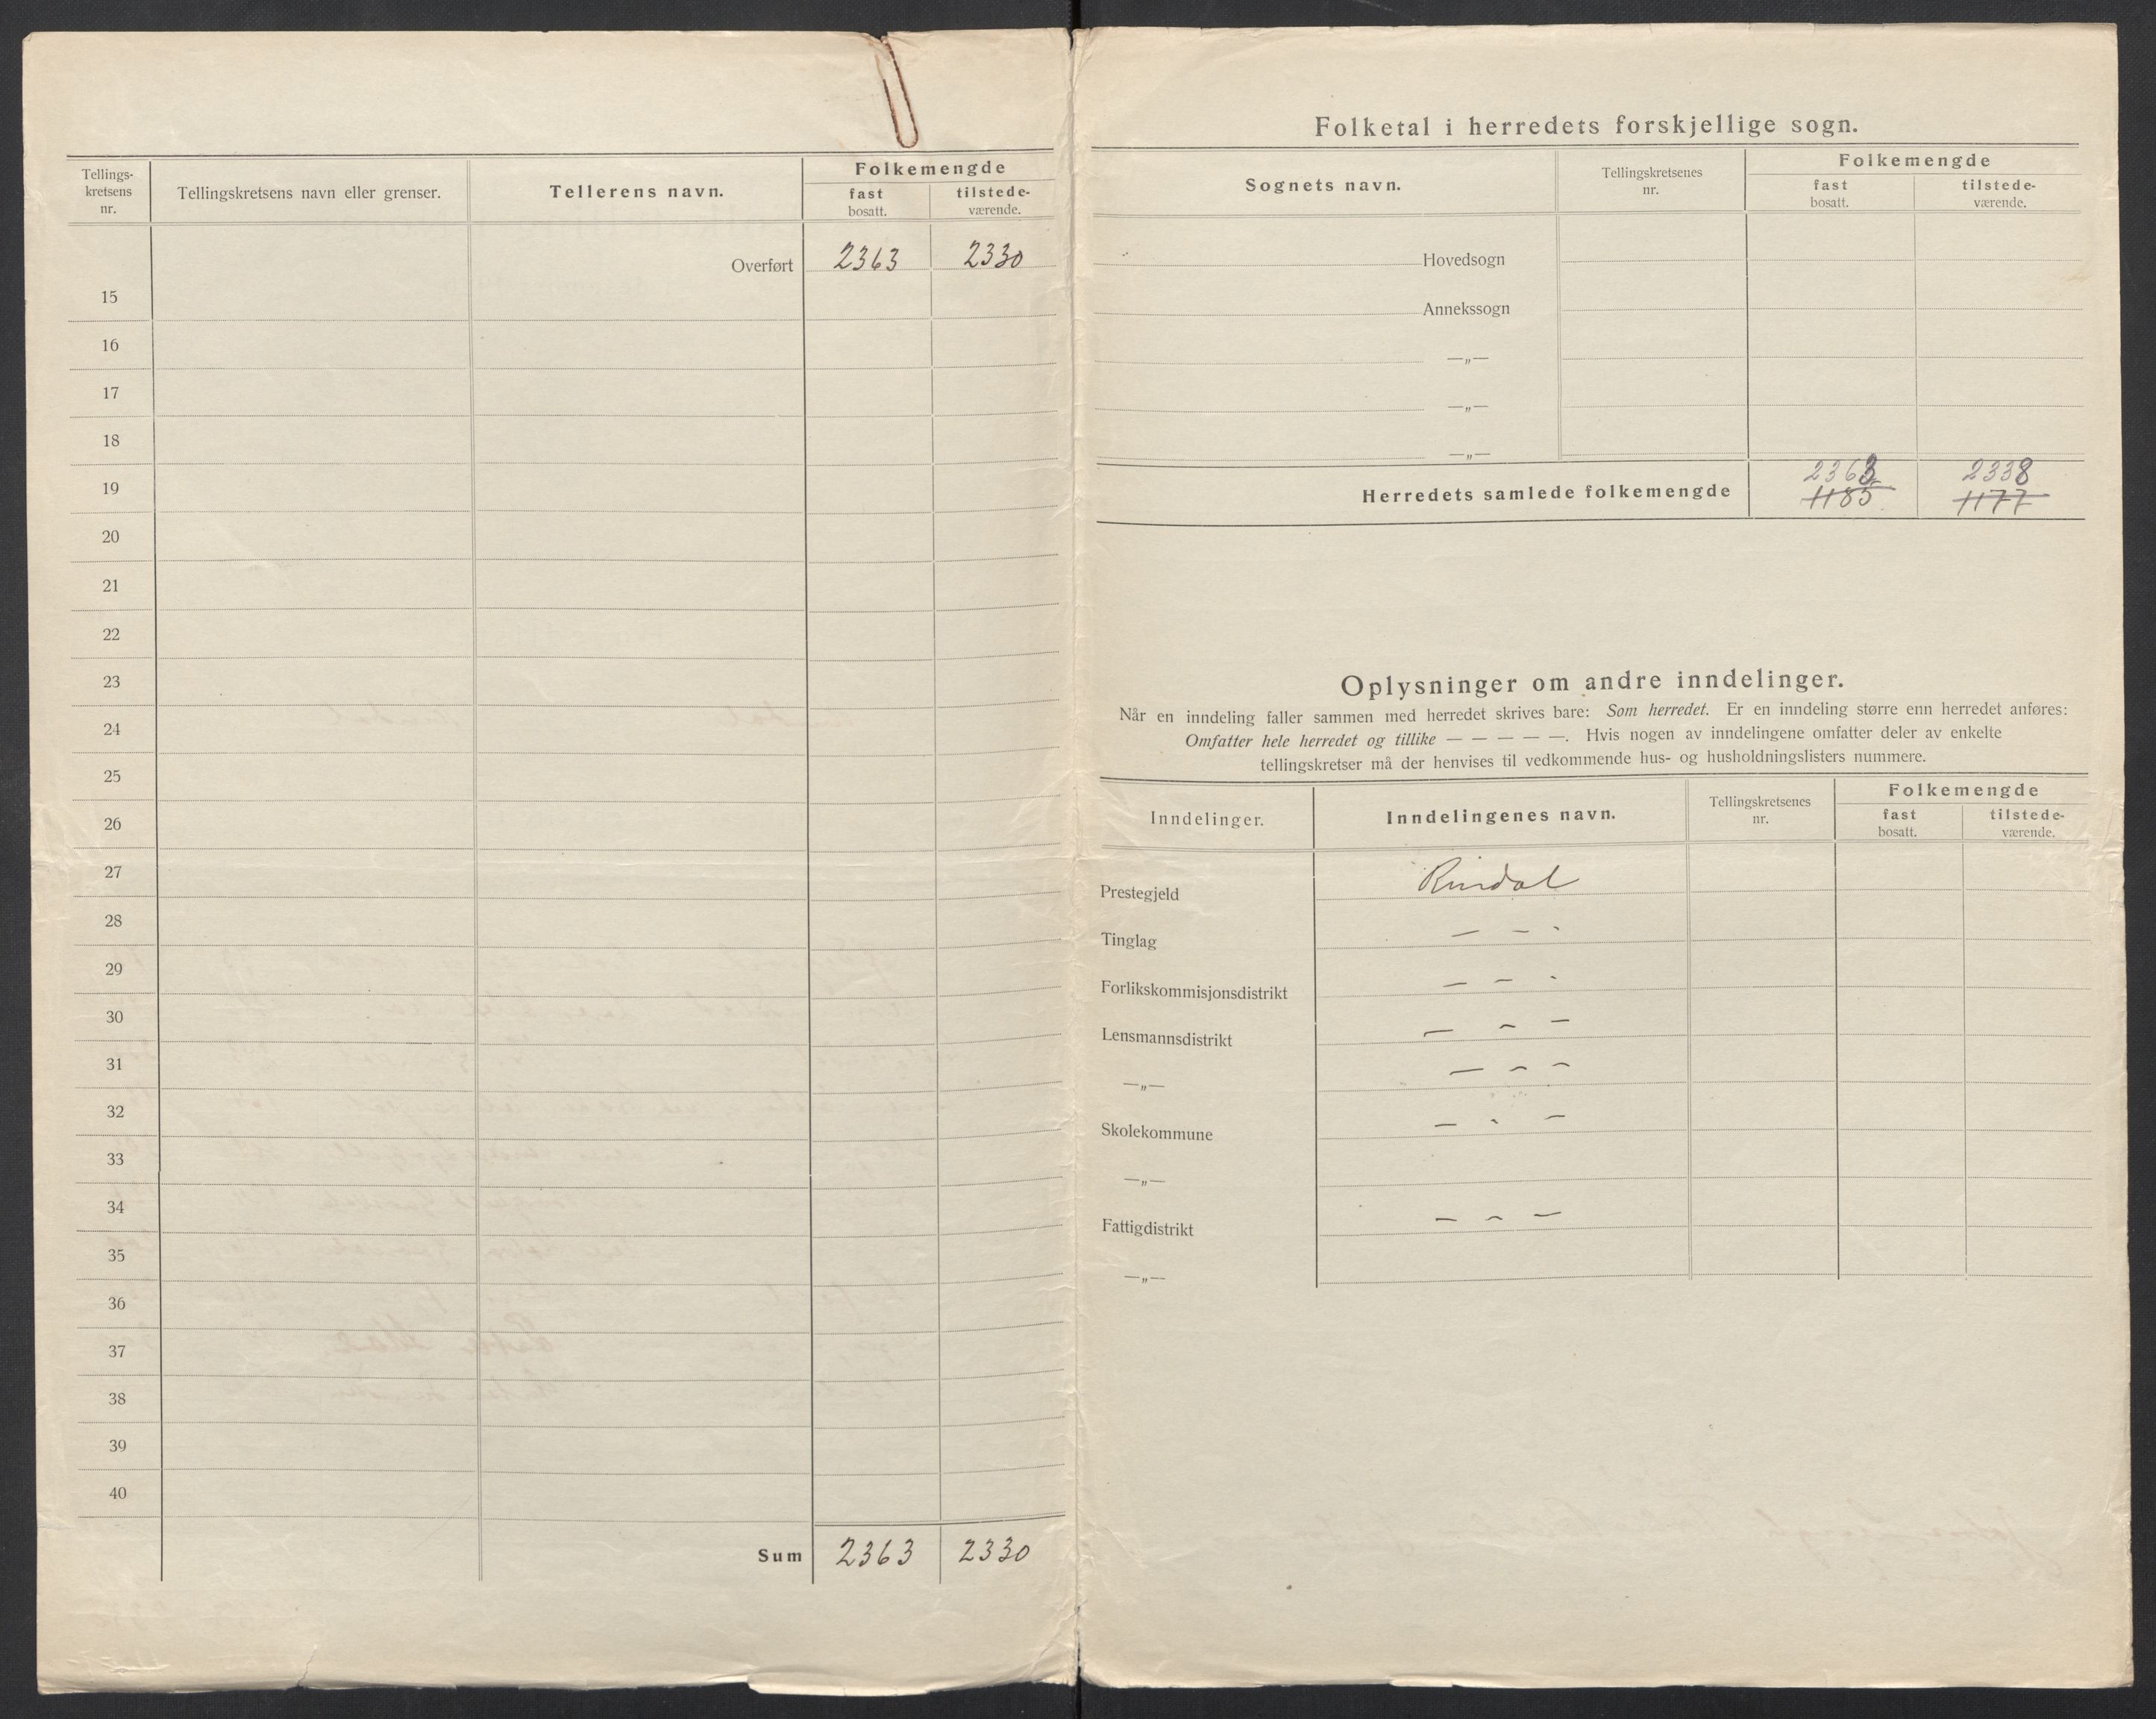 Tellings-
kretsens
nr.
Tellingskretsens navn eller grenser.
Tellerens navn.
Folkemengde
fast
bosatt.
tilstede-
værende.
Overført 2363 2330
15
16
17
18
19
20
21
22
23
24
25
26
27
28
29
30
31
32
33
34
35
36
37
38
39
40
Sum 2363 2330
Folketal i herredets forskjellige sogn.
Sognets navn.
Tellingskretsenes
nr.
Folkemengde
fast
bosatt.
tilstede-
værende.
Hovedsogn
Annekssogn
—„—
—„—
—„—
2363 2338
Herredets samlede folkemengde 1185 1177
Oplysninger om andre inndelinger.
Når en inndeling faller sammen med herredet skrives bare: Som herredet. Er en inndeling større enn herredet anføres:
Omfatter hele herredet og tillike — — — — —. Hvis nogen av inndelingene omfatter deler av enkelte
tellingskretser må der henvises til vedkommende hus- og husholdningslisters nummere.
Inndelinger.
Inndelingenes navn.
Tellingskretsenes
nr.
Folkemengde
fast
bosatt.
tilstede-
værende.
Prestegjeld Rindal
Tinglag — — -
Forlikskommisjonsdistrikt — — -
Lensmannsdistrikt — - —
—„— — - -
Skolekommune — - —
—„—
Fattigdistrikt — - —
—„—